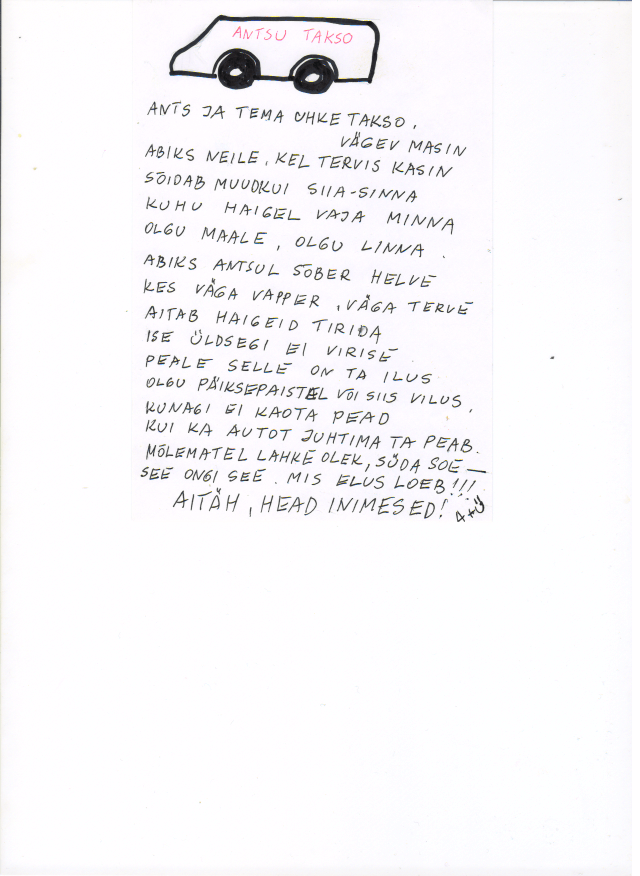 ANTSU TAKSO
ANTS JA TEMA UHKE TAKSO,
VÄGEV MASIN
ABIKS NEILE, KEL TERVIS KASIN
SÕIDAB MUUDKUI SIIA-SINNA
KUHU HAIGEL VAJA MINNA
OLGU MAALE, OLGU LINNA.
ABIKS ANTSUL SÕBER HELVE
KES VÄGA VAPPER, VÄGA TERVE
AITAB HAIGEID TIRIDA
ISE ÜLDSEGI EI VIRISE
PEALE SELLE ON TA ILUS
OLGU PÄIKSEPAISTEL VÕI SIIS VILUS,
KUNAGI EI KAOTA PEAD
KUI KA AUTOT JUHTIMA TA PEAB.
MÕLEMATEL LAHKE OLEK, SÜDA SOE —
SEE ONGI SEE. MIS ELUS LOEB!!!
AITÄH, HEAD INIMESED!